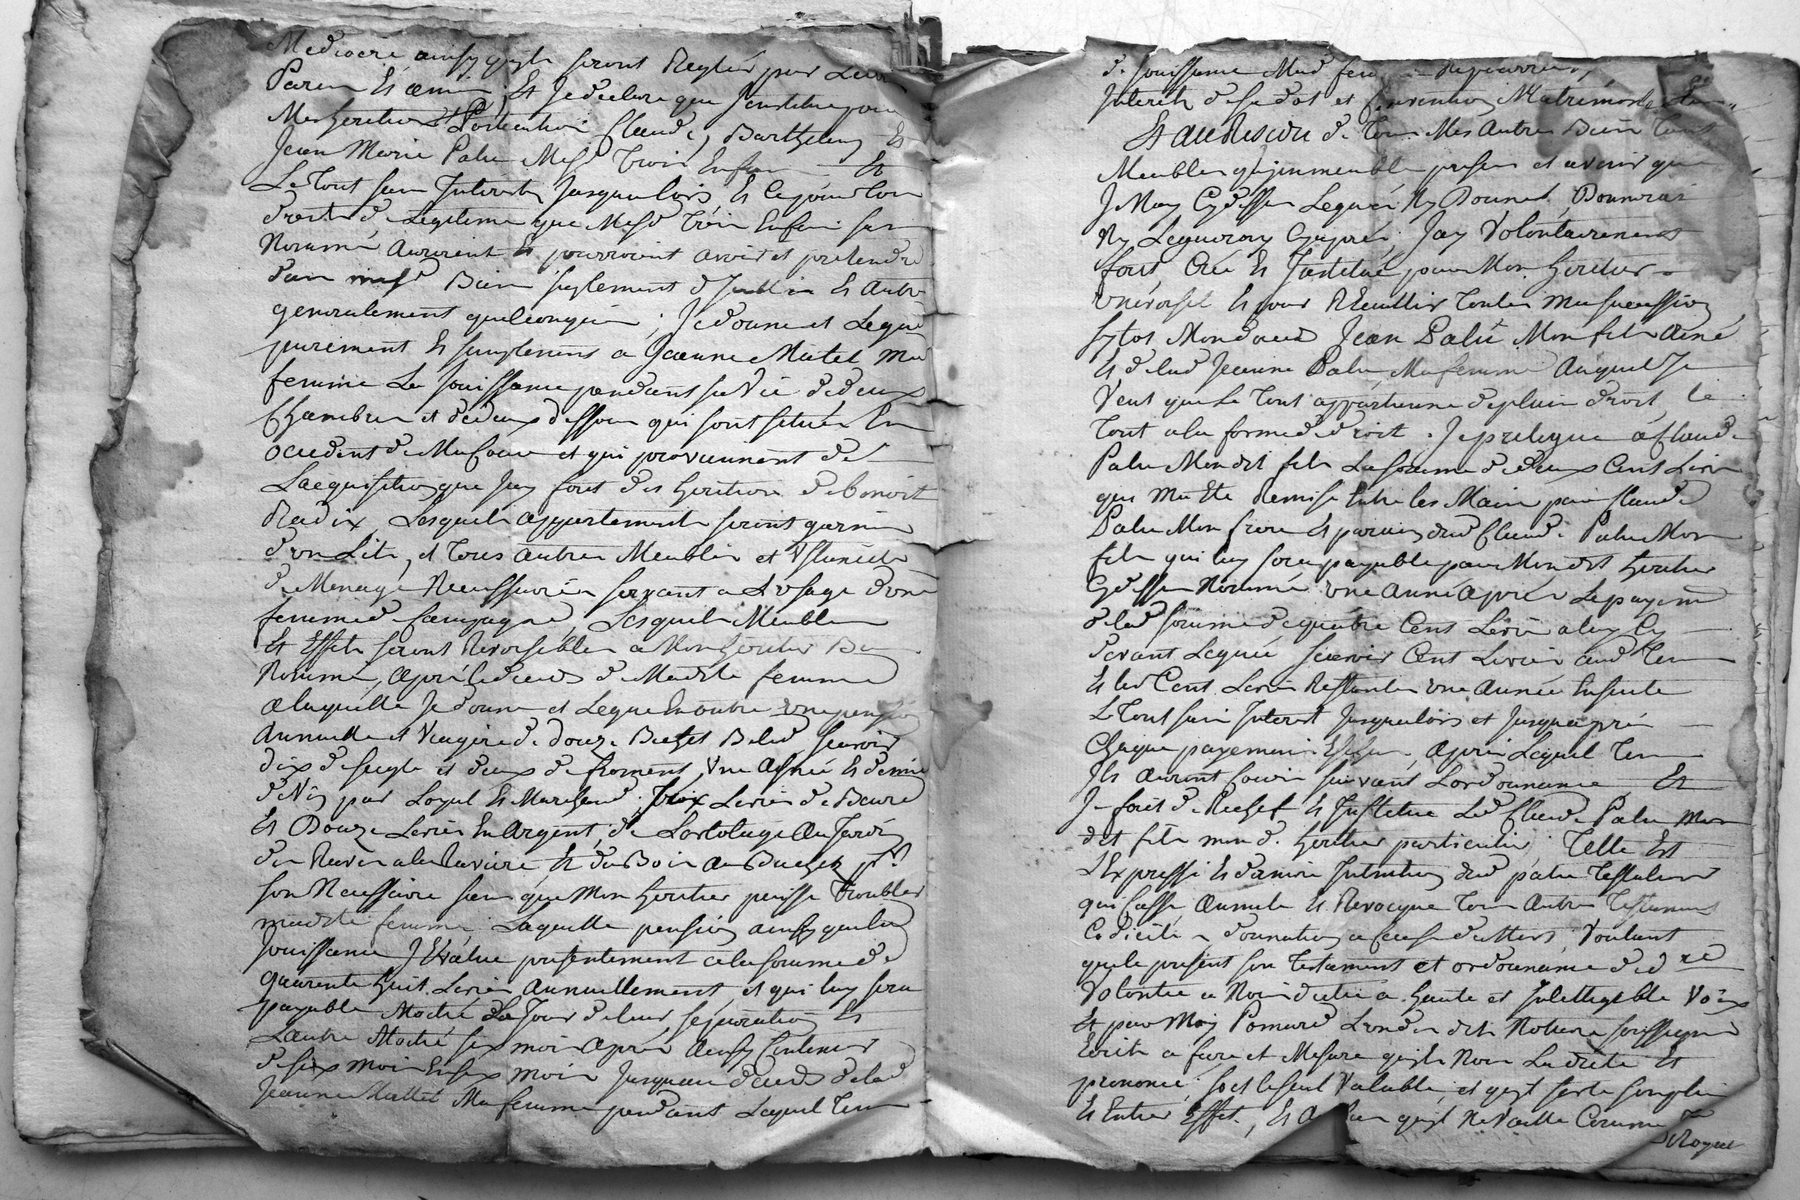 Mediocre ainsy qu'ils seront Reglés par Leurs
Parens Et amis, Et Je declare que J'institue pour
Mes heritiers Claude, Barthelemy Et
Jean Marie Palu Mesd trois Enfans Et
Le Tout sans Interets Jusqualors Et Ce pour Tous
droits de Legitime que Mesd Trois Enfans sus
Nommé auroient Et pourroient avoir et pretendre
dans mesd Biens supplement d'Icelle Et autre
generalement quelconques; Je donne et Legue
purement Et simplement a Jeanne Matel Ma
femme La Jouissance pendant sa Vie de deux
Chambres et de deux dessous qui sont situés En
occident de Ma Cour et qui proviennent de
L'acquisition que Jay fait des heritiers de benoit
Radix, Lesquels appartements seront garnis
d'un Lit, et Tous autres Meubles et Ustancils
de Menage Necessaires servant a L'usage d'une
femme de Campagne, Lesquels Meubles
Et Effets seront Reversibles a Mon heritier Bas
Nommé, après le deces de Madte femme
a laquelle Je donne et Legue En outre une pension
Annuelle et Viagere de douze Bichets Bled sçavoir
dix de seigle et deux de froment, Une Asnée Et demie
de Vin pur Loyal Et Marchand, Trois Livres de Beurre
Et Douze Livres En Argent, de L'ortolage Au Jardin
des Raves a la Raviere Et du Bois au Bucher pr
son Necessaire sans que Mon heritier puisse Troubler
madte femme Laquelle pension ainsy que la
Jouissance J'Evalue presentement a la somme de
quarente huit Livres Annuellement, et qui luy sera
payable Moitié Le Jour de leur separation Et
L'autre Moitié six mois Après Ainsy Continuer
de six mois En six mois Jusqu'au deces de lad
Jeanne Mattel Ma femme pendant Lequel Tems
de Jouissance Mad femme
Interets de sa dot et Convention Matrimoniale
Et au Residu de Tous Mes Autres Biens Tant
Meubles qu'immeubles presens et avenir que
Je N'ay Cydessus Legué Ny Donné, Donnerai
Ny Legueray Cyaprés, Jay Volontairement
fait Créé Et Institué pour Mon heritier
Universel Et pour Recuillir Toute Ma succession
sytot Mon deces Jean Palu Mon fils aîné
Et de lad Jeanne Palu Ma femme Auquel Je
Veut que Le Tout appartienne de plein droit, le
Tout a la forme de droit. Je prelegue a Claude
Palu Mondit fils La somme de deux Cent Livres
qui M'a Eté Remise Entre les Mains par Claude
Palu Mon frere Et parain dud Claude Palu Mon
fils qui luy sera payable par Mondit heritier
Cydessus Nommé une année Après Le payement
de lad somme de quatre Cent Livres a luy Cy
devant Legué sçavoir Cent Livres aud Tems
Et les Cent Livres Restantes une année Ensuite
Le Tout sans Interet Jusqualors et Jusqu'après
Chaque payement Echus, Après Lequel Tems
Ils Auront Cours suivant L'ordonnance, Et
Je fais de Rechef Et Institue Led Claude Palu Mon
dit fils mond. heritier particulier. Telle Est
L'Expresse Et derniere Intention dud palu Testateur
qui Casse Annule Et Revoque Tous Autres Testaments
Codicile donation a Cause de Mort, Voulant
que le present son Testament et ordonnance de dre
Volontée a Nous dictée a haute et Intelligible Voix
Et par Moy Ponmard L'un desdits Notaires soussigné
Ecrit a fure et Mesure qu'il Nous La dicté Et
prononcé soit le seul Valable, et qu'il sorte son plein
Et Entier Effet, Et Au Cas qu'il Ne Vaille Comme